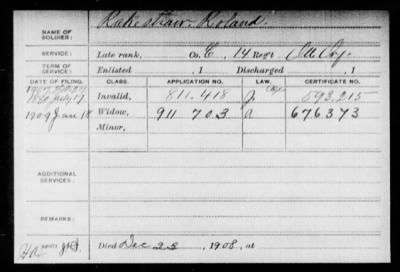 NAME OF SOLDIER: Rakestraw Roland.
SERVICE: Late rank, Co. E, 14 Reg't Ill Cav.
TERM OF SERVICE: Enlisted , 1 Discharged , 1
DATE OF FILING. CLASS. APPLICATION NO. LAW. CERTIFICATE NO.
1890 July 17 Invalid, 811.418 593,215
1909 Jan 18 Widow, 911 703 a 676373
Minor,
ADDITIONAL SERVICES:
REMARKS:
Died Dec 23, 1908, at